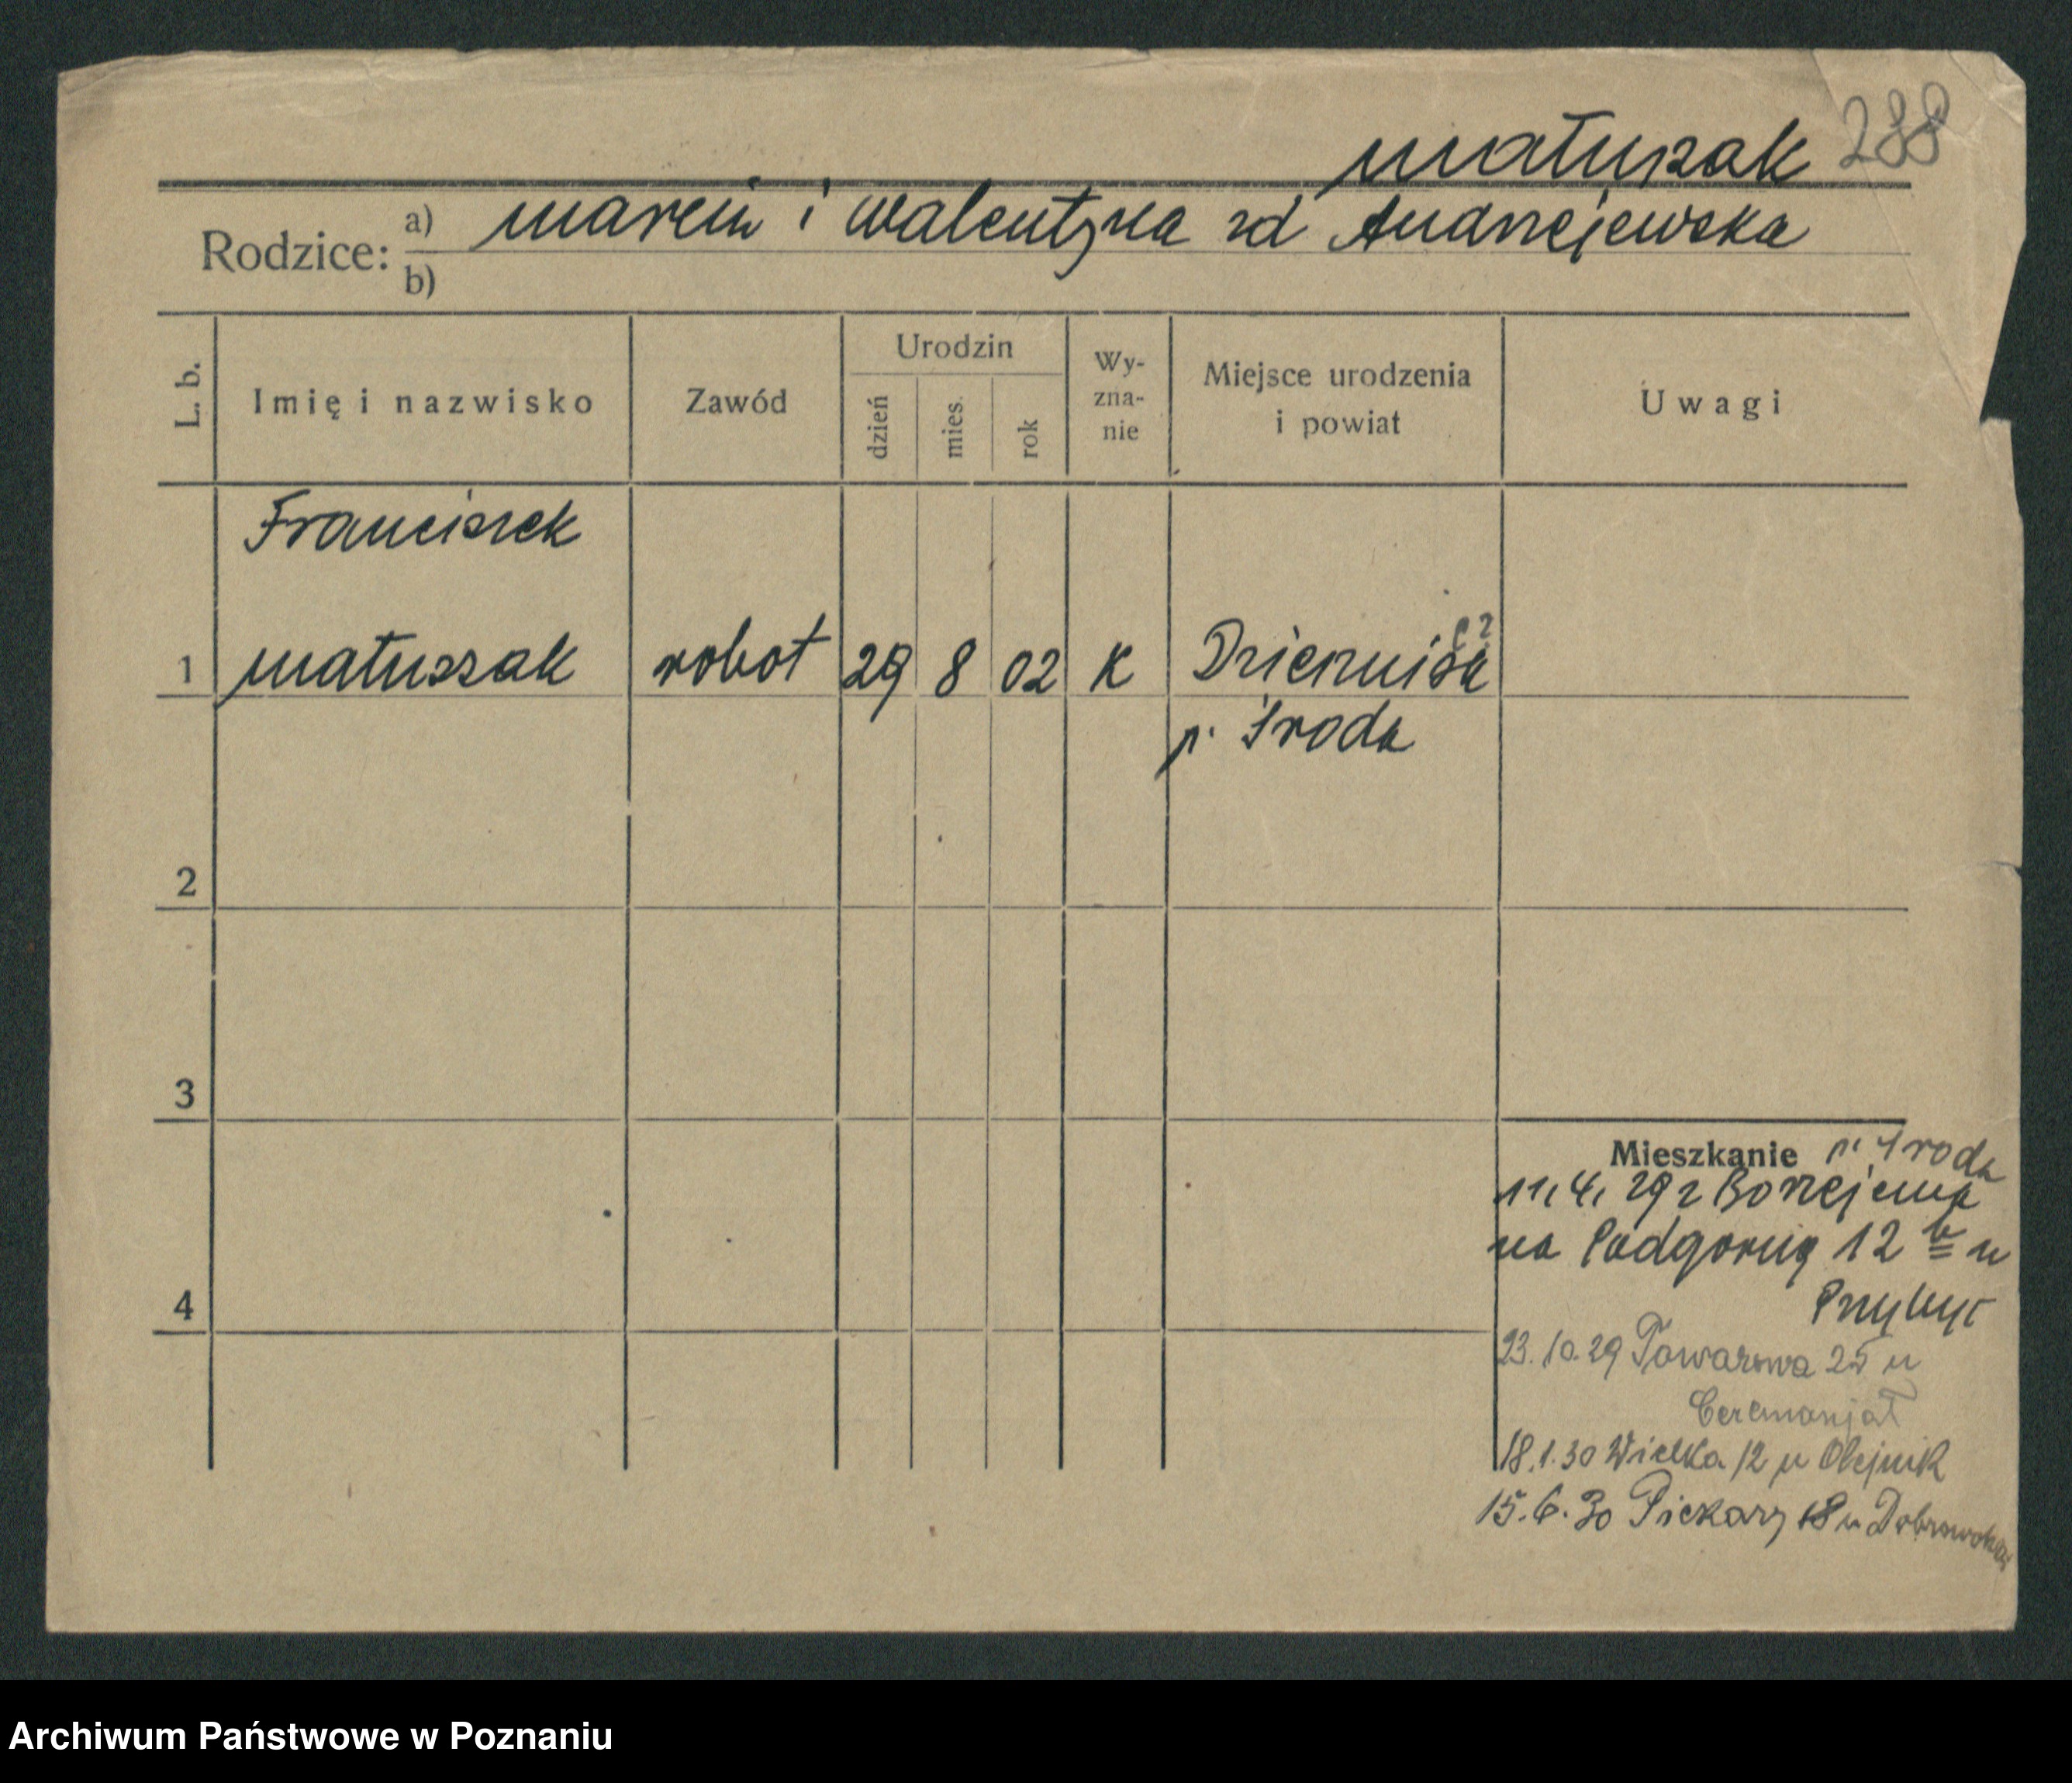 Matuszak 288
Rodzice: a) Marcin i Walentyna zd Andrzejewska
b)
L. b. Imię i nazwisko Zawód Urodzin dzień mies. rok Wy-zna-nie Miejsce urodzenia i powiat Uwagi
Franciszek
1 Matuszak robot 29 8 02 K
p. Środa
2
3
4
Mieszkanie p. Środa
11.4.29 z
na 12 b u
Przybył
23.10.29 Towarowa 25 u
18.1.30 Wielka 12 u Olejnik
15.6.30 Piekary 18 u
Archiwum Państwowe w Poznaniu